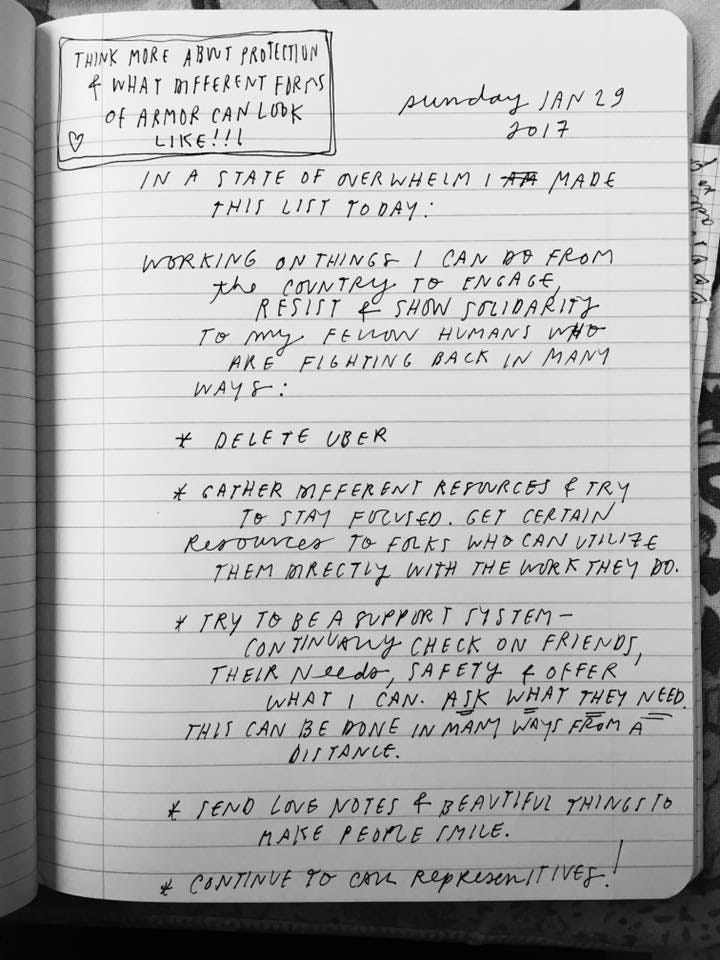 THINK MORE ABOUT PROTECTION
& WHAT DIFFERENT FORMS
OF ARMOR CAN LOOK
♡ LIKE!!!
sunday JAN 29
2017
IN A STATE OF OVERWHELM I AM MADE
THIS LIST TODAY:
WORKING ON THINGS I CAN DO FROM
the COUNTRY TO ENGAGE,
RESIST & SHOW SOLIDARITY
TO my FELLOW HUMANS WHO
ARE FIGHTING BACK IN MANY
WAYS:
* DELETE UBER
* GATHER DIFFERENT RESOURCES & TRY
TO STAY FOCUSED. GET CERTAIN
Resources TO FOLKS WHO CAN UTILIZE
THEM DIRECTLY WITH THE WORK THEY DO.
* TRY TO BE A SUPPORT SYSTEM –
CONTINUALLY CHECK ON FRIENDS,
THEIR Needs, SAFETY & OFFER
WHAT I CAN. ASK WHAT THEY NEED.
THIS CAN BE DONE IN MANY WAYS FROM A
DISTANCE.
* SEND LOVE NOTES & BEAUTIFUL THINGS TO
MAKE PEOPLE SMILE.
* CONTINUE TO CALL REPRESENITIVES!